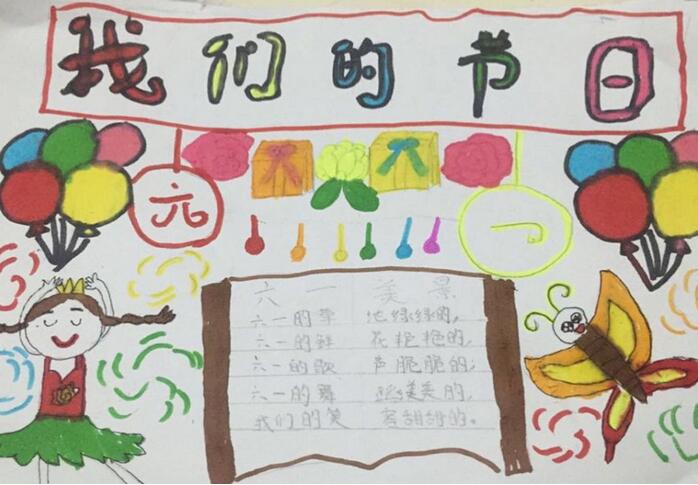 我们的节日
六 一
六一 美景
六一的草 地绿绿的，
六一的鲜 花艳艳的，
六一的歌 声脆脆的；
六一的舞 姿美美的，
我们的笑 容甜甜的。